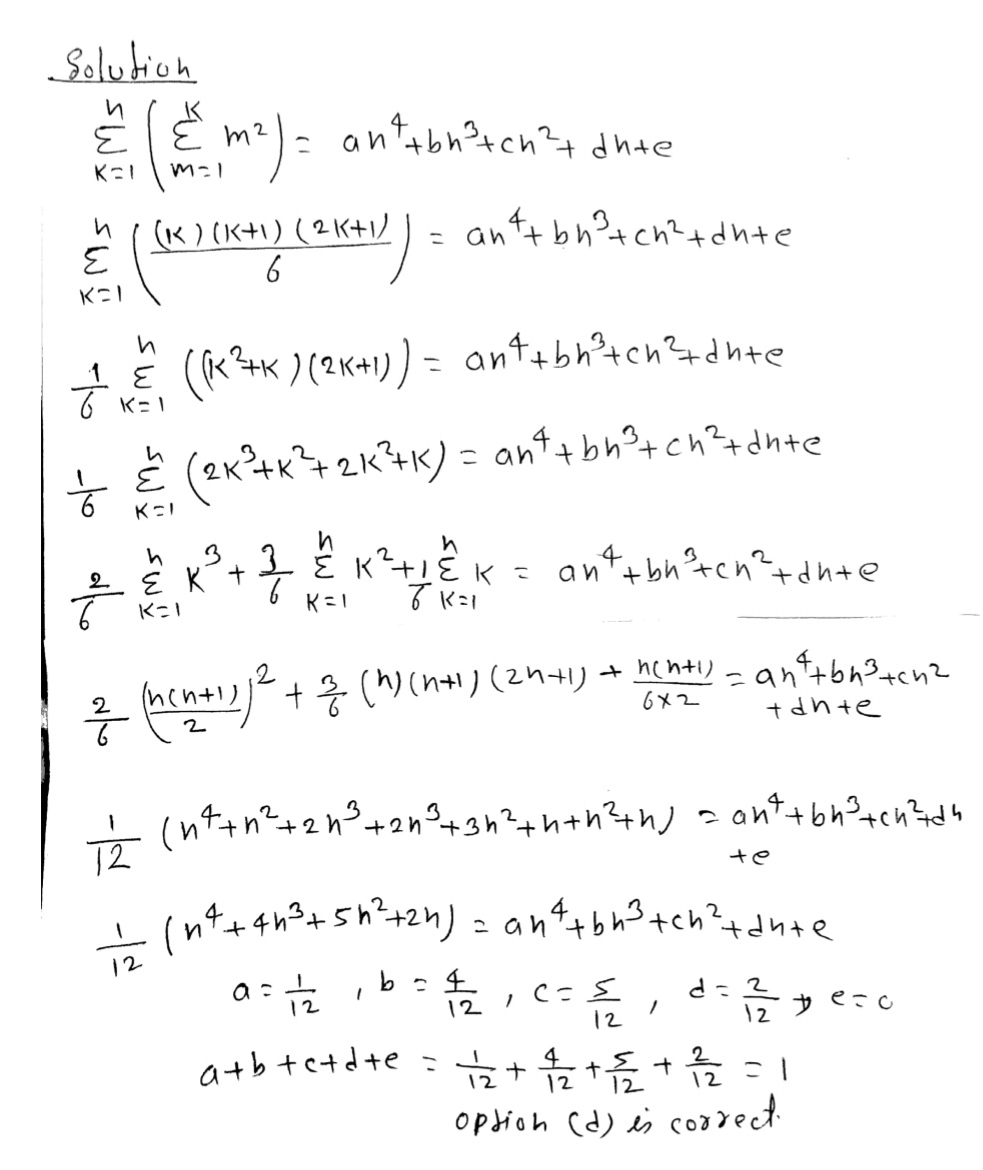 Solution
n Σ K=1 ( K Σ m=1 m² ) = an⁴+bn³+cn²+dn+e
n Σ K=1 ( (K)(K+1)(2K+1) / 6 ) = an⁴+bn³+cn²+dn+e
1/6 n Σ K=1 ((K²+K)(2K+1)) = an⁴+bn³+cn²+dn+e
1/6 n Σ K=1 (2K³+K²+2K²+K) = an⁴+bn³+cn²+dn+e
2/6 n Σ K=1 K³ + 3/6 n Σ K=1 K² + 1/6 n Σ K=1 K = an⁴+bn³+cn²+dn+e
2/6 (n(n+1)/2)² + 3/6 (n)(n+1)(2n+1) + n(n+1)/6×2 = an⁴+bn³+cn²
+dn+e
1/12 (n⁴+n²+2n³+2n³+3n²+n+n²+n) = an⁴+bn³+cn²+dn
+e
1/12 (n⁴+4n³+5n²+2n) = an⁴+bn³+cn²+dn+e
a=1/12 , b=4/12 , c=5/12 , d=2/12 , e=0
a+b+c+d+e = 1/12 + 4/12 + 5/12 + 2/12 = 1
option (d) is correct.